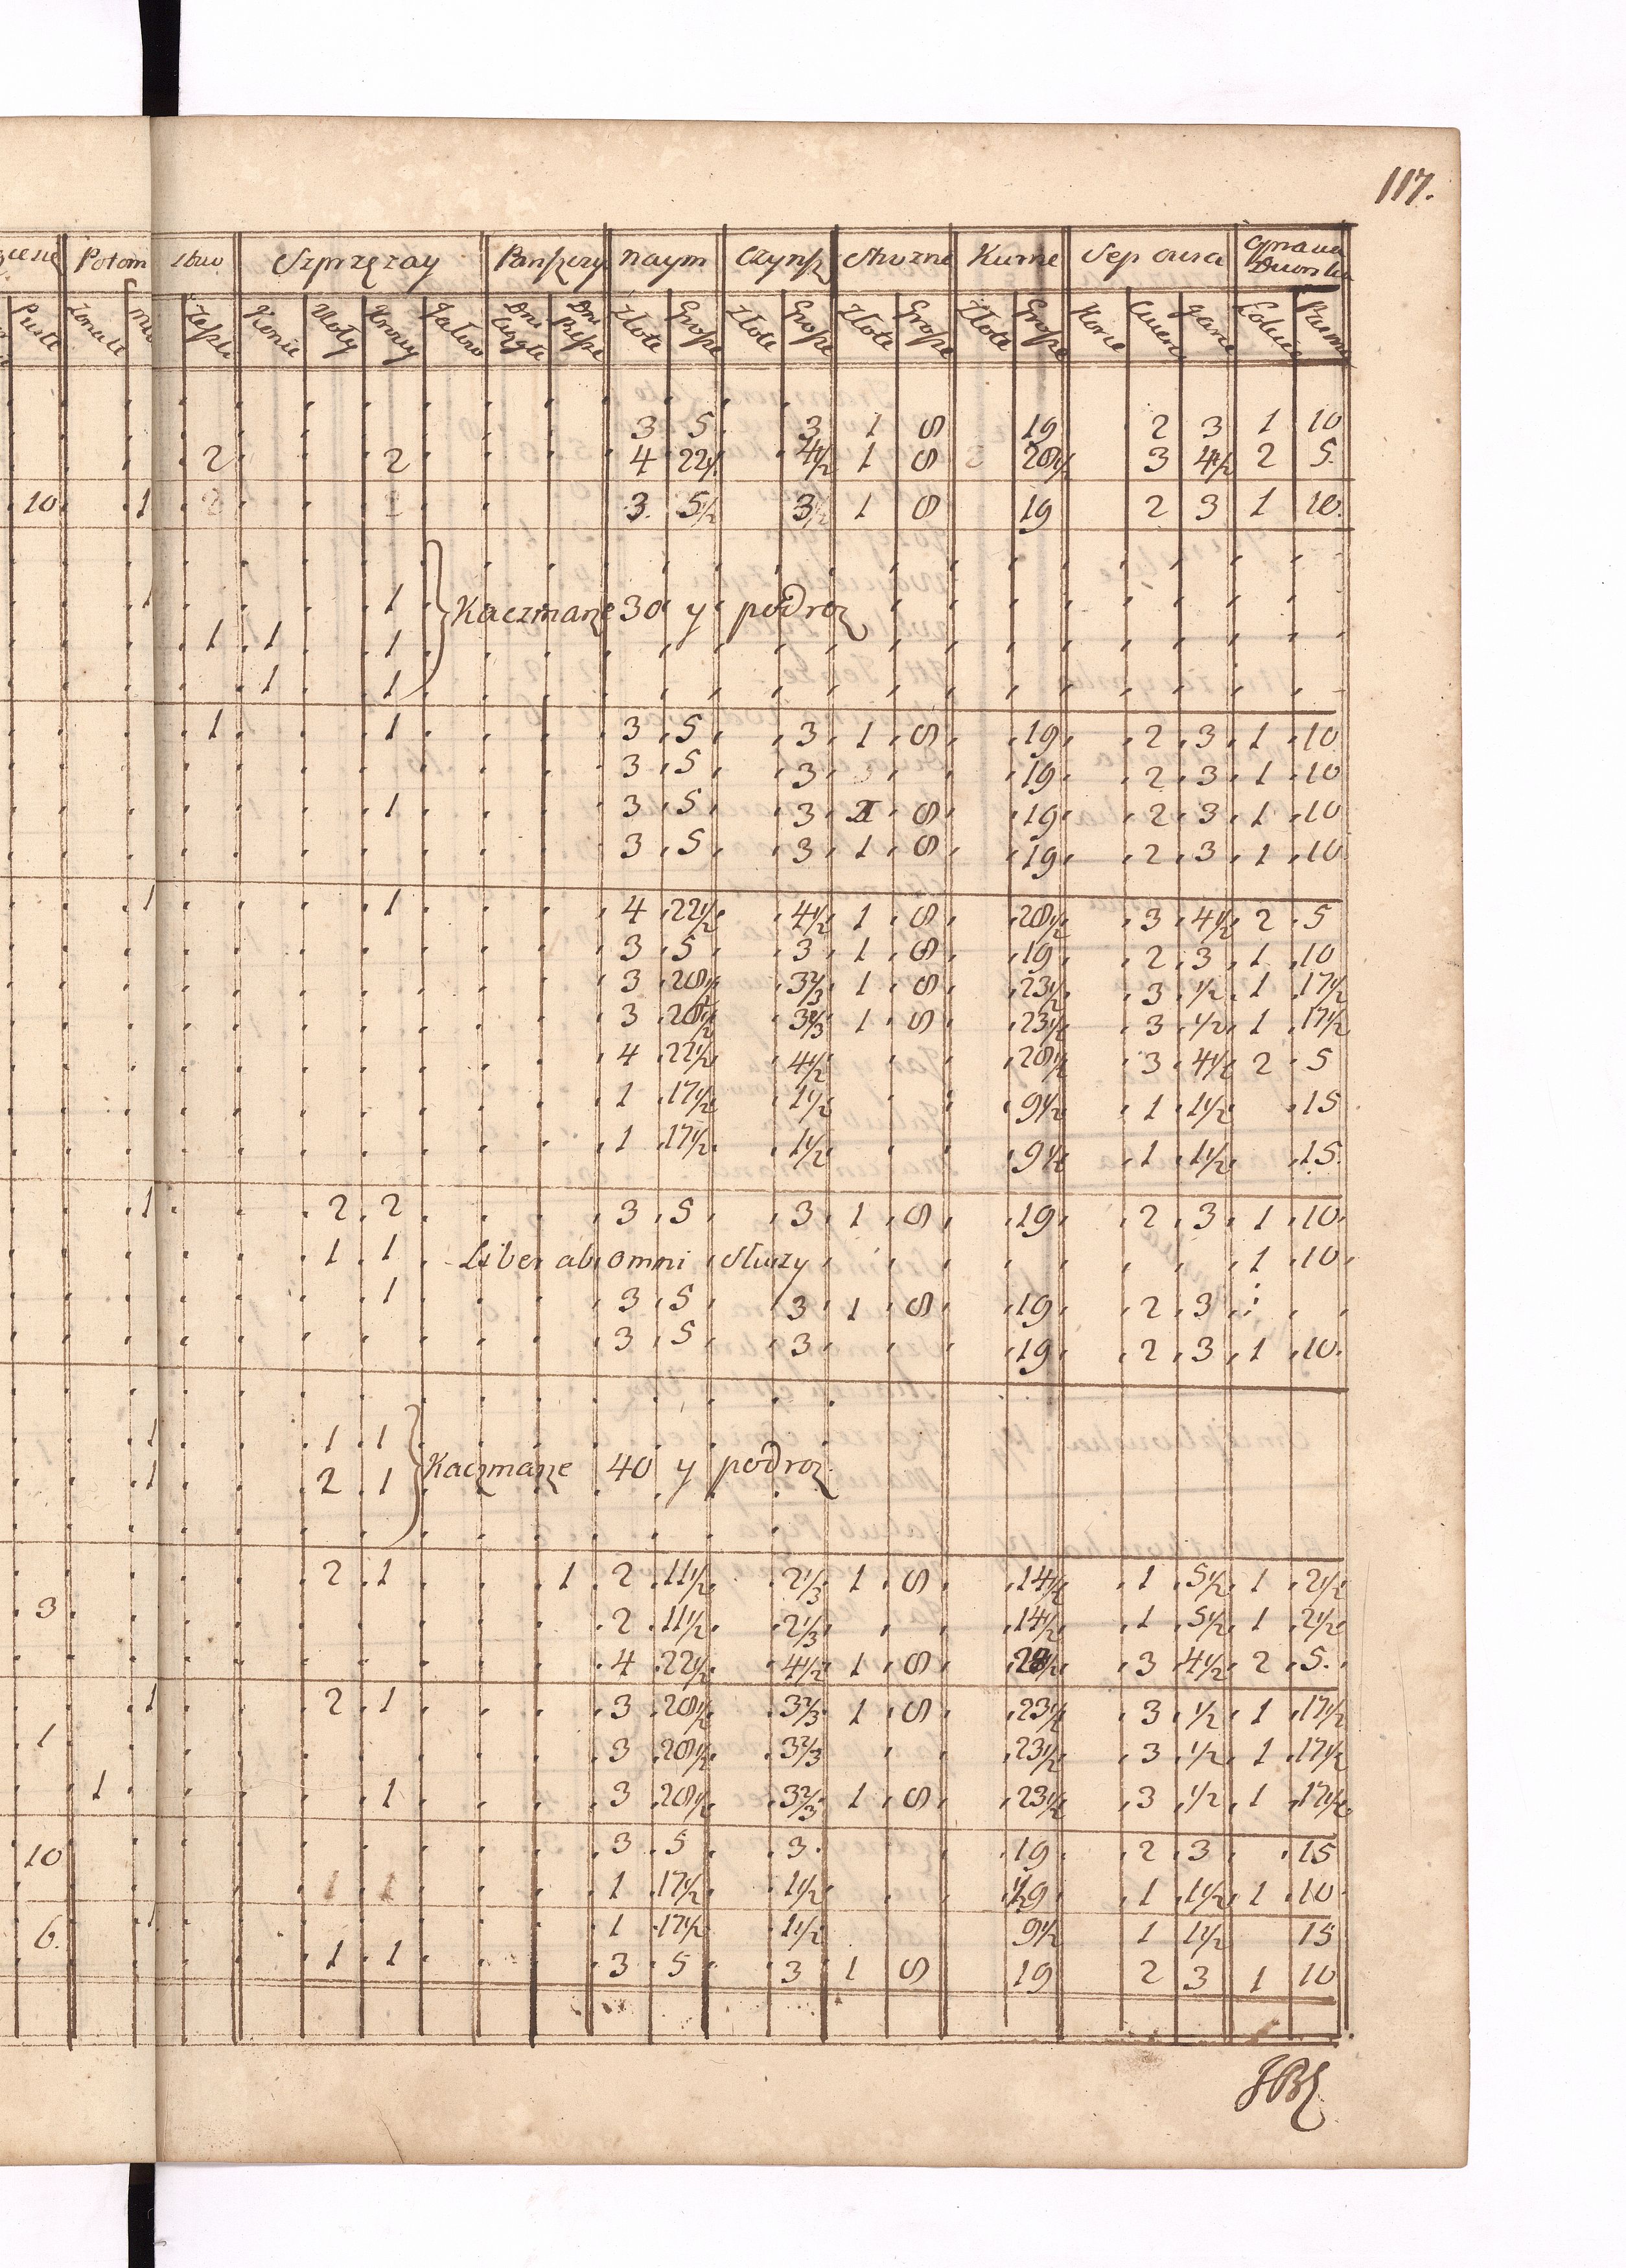 117.
Potom stwo Szprzęzay Panszczy Naym Czynsz Struzne Kurne Sep owsa Oprawa Dworska
Puste Konie Woły Krowy Jałow Dni Ciągłe Dni Piesze Złote Grosze Złote Grosze Złote Grosze Złote Grosze Korce
3 5 3 1 8 19 2 3 1 10
2 2 4 22½ 4½ 1 8 28½ 3 4½ 2 5
10 1 2 2 3 5½ 3½ 1 8 19 2 3 1 10
1 1
1 1 1
Kaczmarze 30 y podroz
1 1
1 1 3 5 3 1 8 19 2 3 1 10
3 5 3 19 2 3 1 10
1 3 5 3 8 19 2 3 1 10
3 5 3 1 8 19 2 3 1 10
1 1 4 22½ 4½ 1 8 28½ 3 4½ 2 5
3 5 3 1 8 19 2 3 1 10
3 28½ 3⅔ 1 8 23½ 3 ½ 1 17½
3 28½ 3⅔ 1 8 23½ 3 ½ 1 17½
4 22½ 4½ 28½ 3 4½ 2 5
1 17½ 1½ 9½ 1 1½ 15
1 17½ 1½ 9½ 1 1½ 15
1 2 2 3 5 3 1 8 19 2 3 1 10
1 1 Liber ab omni Słuzy 1 10
1 3 5 3 1 8 19 2 3
3 5 3 19 2 3 1 10
1 1 1
1 2 1
Kaczmarze 40 y podroz
2 1 1 2 11½ 2⅓ 1 8 14½ 1 5½ 1 2½
3 2 11½ 2⅓ 14½ 1 5½ 1 2½
4 22½ 4½ 1 8 28½ 3 4½ 2 5
1 2 1 3 28½ 3⅔ 1 8 23½ 3 ½ 1 17½
1 3 28½ 3⅔ 23½ 3 ½ 1 17½
1 1 3 28½ 3⅔ 1 8 23½ 3 ½ 1 17½
10 3 5 3 19 2 3 15
1 1 1 17½ 1½ 19 1 1½ 1 10
6 1 1 17½ 1½ 9½ 1 1½ 15
1 1 3 5 3 1 8 19 2 3 1 10